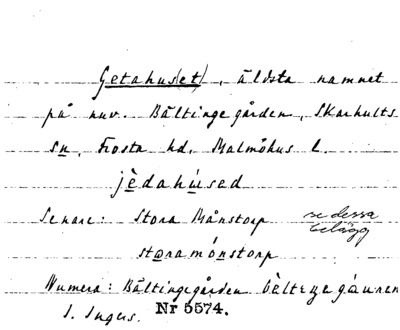 Getahus(et), äldsta namnet
på nuv. Bältingegården, Skarhults
sn, Frosta hd, Malmöhus l.
jèdahúsed
Senare: Stora Månstorp se dessa
belägg
storamónstorp
Numera: Bältingegården bèltingegáuren
I. Ingers. Nr 5574.